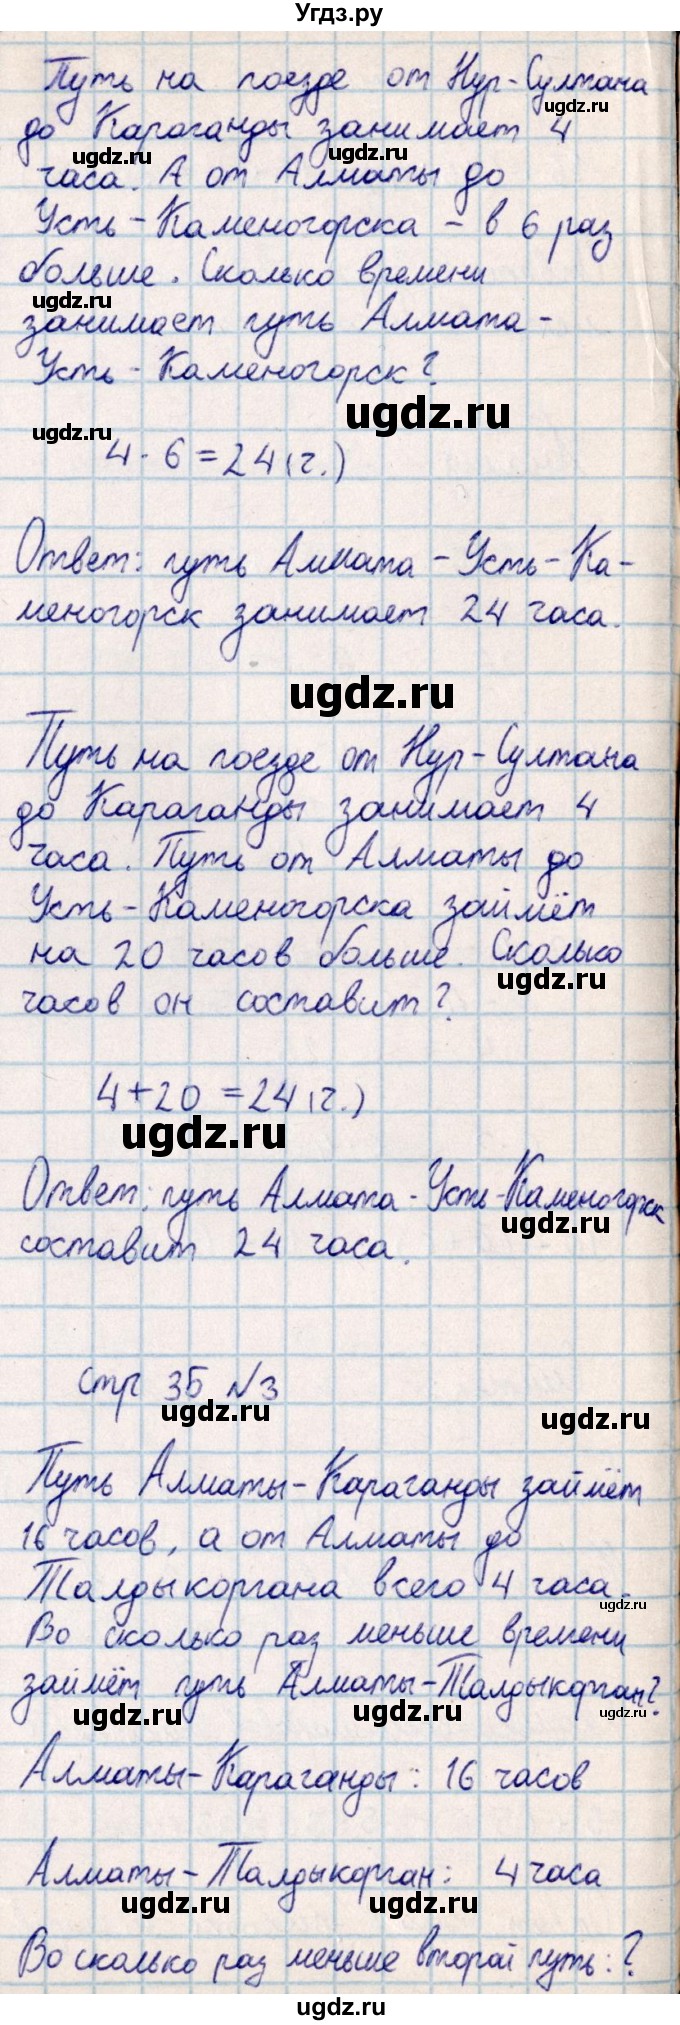 Угдз.ру
Путь на поезде от Нур-Султана
до Караганды занимает 4
часа. А от Алматы до
Усть-Каменогорска - в 6 раз
больше. Сколько времени
занимает путь Алмата-
Усть-Каменогорск?
4·6=24(ч.)
Ответ: путь Алмата-Усть-Ка-
меногорск занимает 24 часа.
Путь на поезде от Нур-Султана
до Караганды занимает 4
часа. Путь от Алматы до
Усть-Каменогорска займёт
на 20 часов больше. Сколько
часов он составит?
4+20=24(ч.)
Ответ: путь Алмата-Усть-Каменогорск
составит 24 часа.
стр 35 №3
Путь Алматы-Караганды займёт
16 часов, а от Алматы до
Талдыкоргана всего 4 часа.
Во сколько раз меньше времени
займёт путь Алматы-Талдыкорган?
Алматы-Караганды: 16 часов
Алматы-Талдыкорган: 4 часа
Во сколько раз меньше второй путь: ?
ugdz.ru